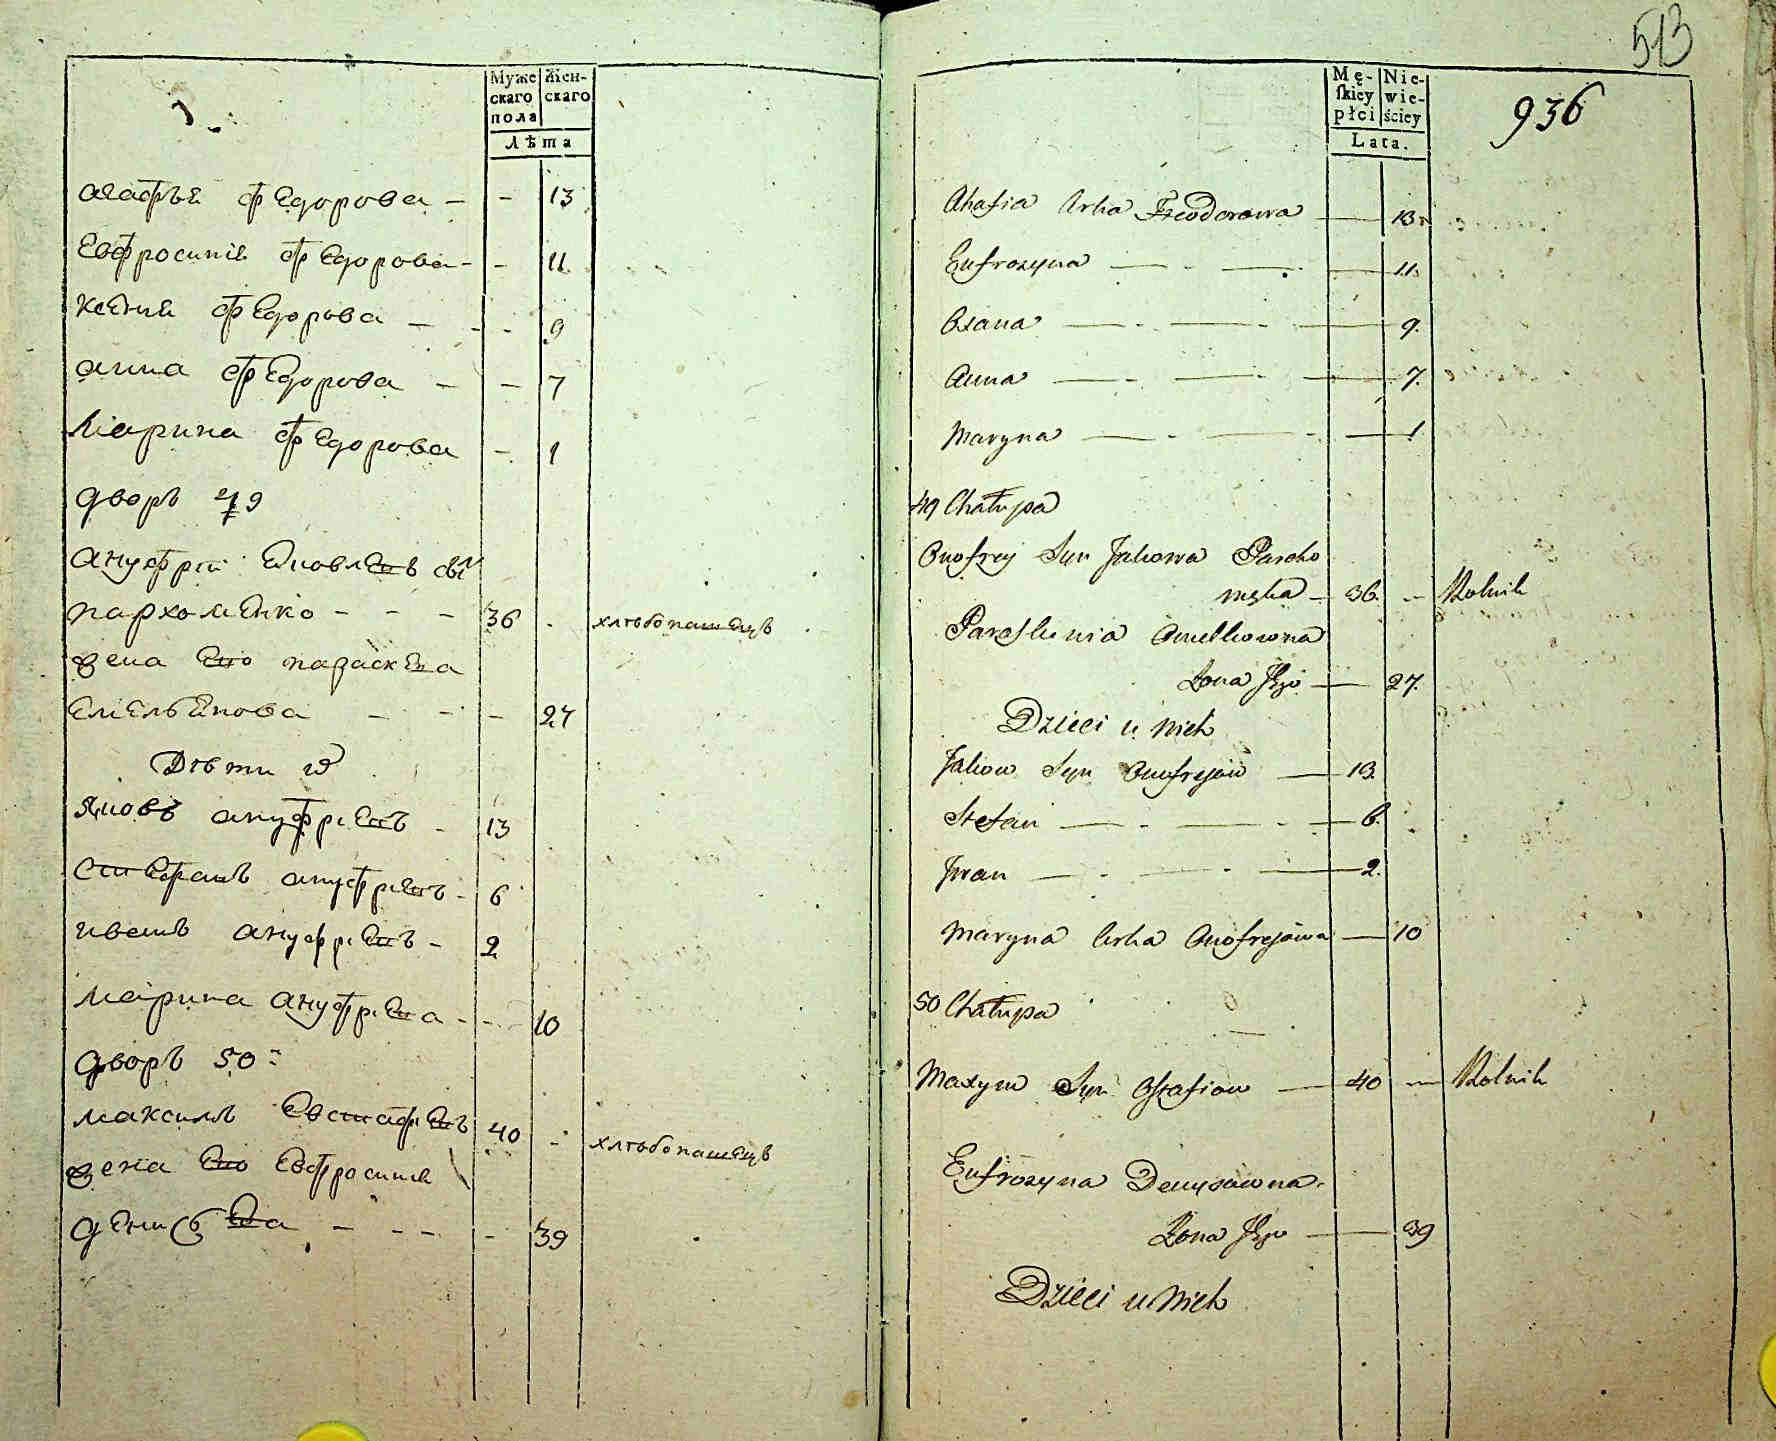 Муже
скаго
пола
Жен-
скаго
Лѣта
агафья федорова - - 13
Евфросинія федорова - - 11
ксения федорова - - - 9
анна федорова - - 7
Марина федорова - 1
дворъ 49
ануфрій яковлевъ сынъ
пархоменко - - - 36 - хлѣбопашецъ
жена ево параскева
Емельянова - - - 27
Дѣти их
Яковъ ануфріевъ - 13
Стефанъ ануфріевъ - 6
иванъ ануфріевъ - 2
Марина ануфріева - - 10
дворъ 50
максимъ Евстафіевъ 40 - хлѣбопашецъ
жена ево Евфросиния
денисова - - - - 39
513
Mę-
ſkiey
płci
Nie-
wie-
ściey
Lata.
936
Ahafia Crka Fieodorowa — 13
Eufrozyna — - — - — 11.
Oxana — - — - — 9.
Anna — - — - — 7.
Maryna — - — - — 1
49 Chałupa
Onofrey Syn Jakowa Parcho
męka - 36. - Rolnik
Paraskewia Omelkowna
Żona Jego — 27.
Dzieci u nich
Jakow Syn Onofrejow — 13.
Stefan — - — - — 6.
Jwan — - — - — 2.
Maryna Crka Onofrejowa — 10
50 Chałupa
Maxym Syn Ostafiow — 40 — Rolnik
Eufrozyna Denysowna.
Żona Jego — 39
Dzieci u Nich